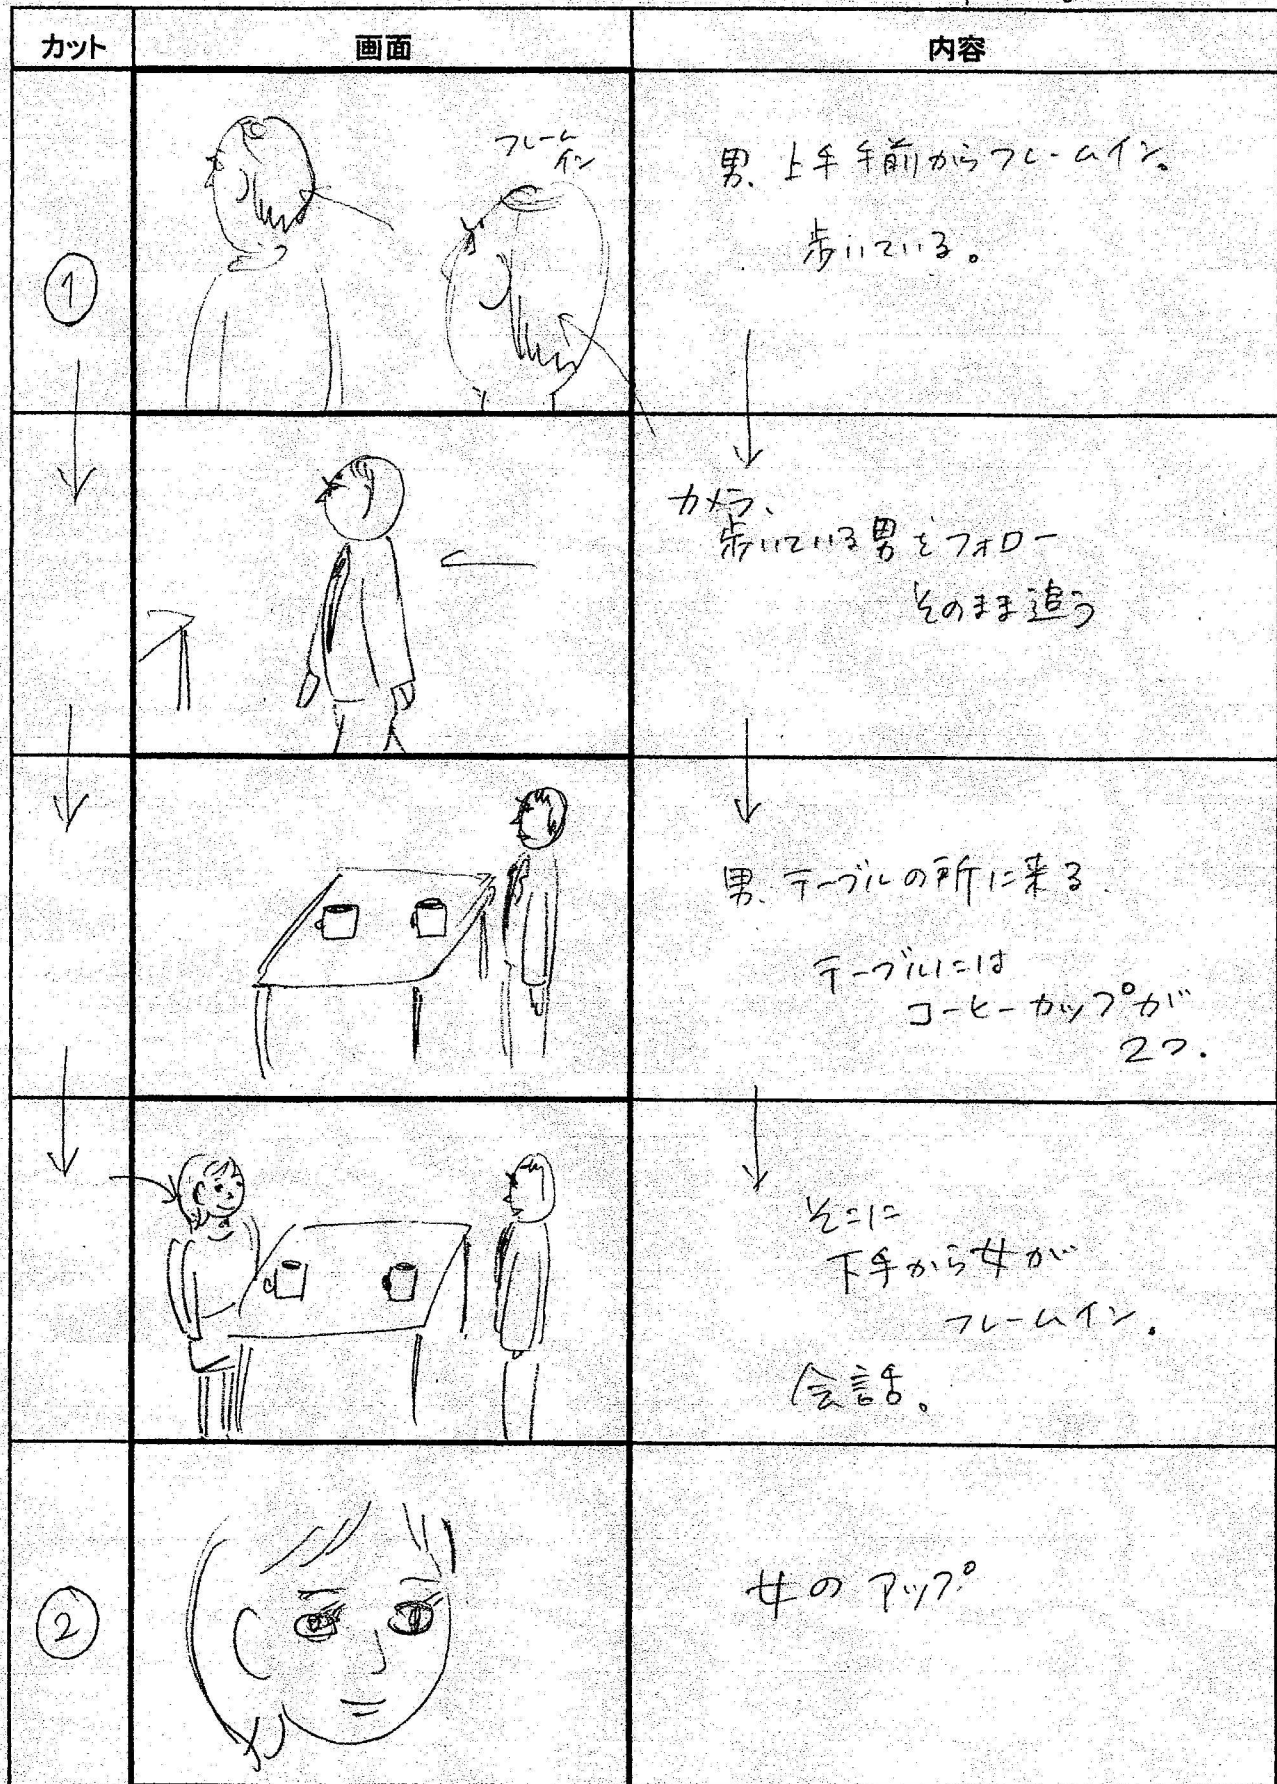 カット 画面 内容
①
フレーム
イン
男、上手手前からフレームイン。
歩いている。
カメラ、
歩いている男をフォロー
そのまま追う
男、テーブルの所に来る
テーブルには
コーヒーカップが
2つ.
そこに
下手から女が
フレームイン.
会話。
②
女のアップ